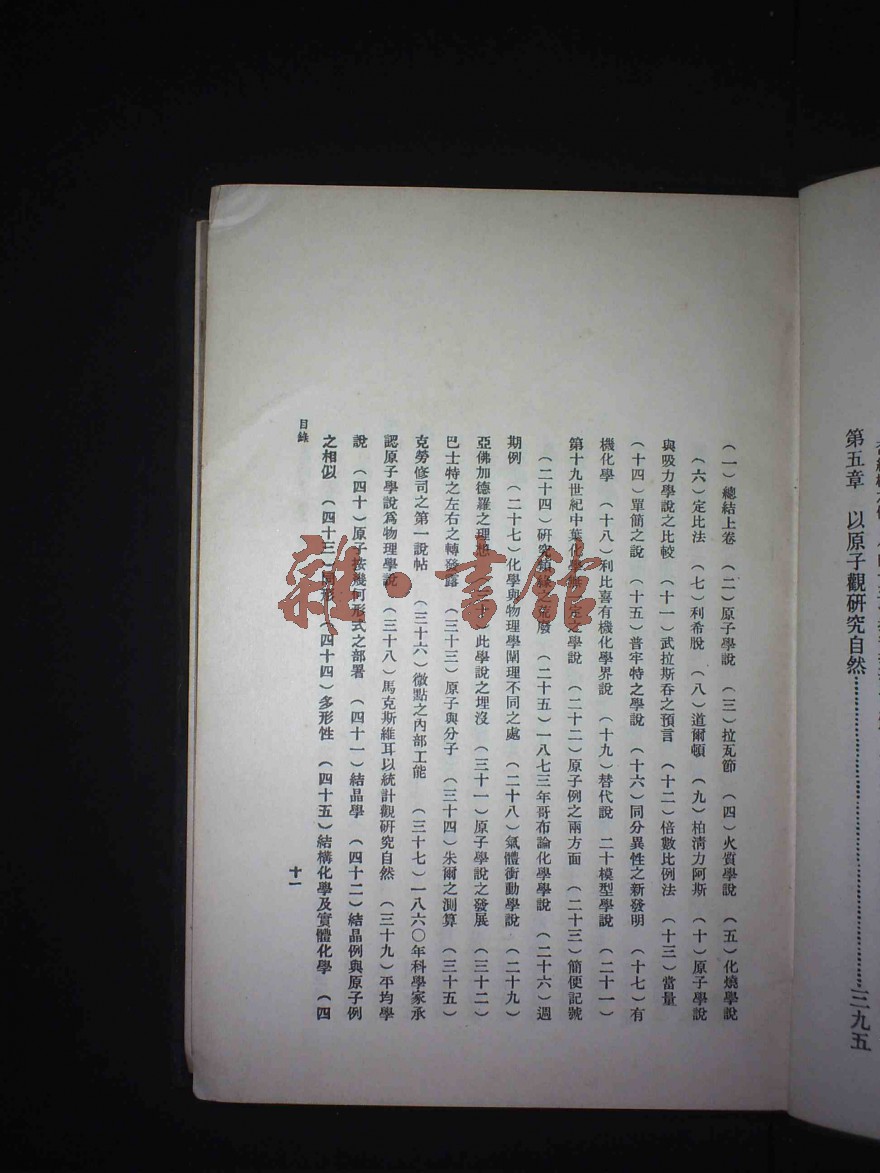 第五章　以原子觀研究自然……三九五
（一）總結上卷　（二）原子學說　（三）拉瓦節　（四）火質學說　（五）化燒學說
（六）定比法　（七）利希脫　（八）道爾頓　（九）柏淸力阿斯　（十）原子學說
與吸力學說之比較　（十一）武拉斯吞之預言　（十二）倍數比例法　（十三）當量
（十四）單簡之說　（十五）普牢特之學說　（十六）同分異性之新發明　（十七）有
機化學　（十八）利比喜有機化學界說　（十九）替代說　二十模型學說　（二十一）
第十九世紀中葉化學無一定之學說　（二十二）原子例之兩方面　（二十三）簡便記號
（二十四）研究類緣之荒廢　（二十五）一八七三年哥布論化學學說　（二十六）週
期例　（二十七）化學與物理學闡理不同之處　（二十八）氣體衝動學說　（二十九）
亞佛加德羅之理想　（三十）此學說之埋沒　（三十一）原子學說之發展　（三十二）
巴士特之左右之轉發露　（三十三）原子與分子　（三十四）朱爾之測算　（三十五）
克勞修司之第一說帖　（三十六）微點之內部工能　（三十七）一八六〇年科學家承
認原子學說爲物理學說　（三十八）馬克斯維耳以統計觀研究自然　（三十九）平均學
說　（四十）原子按幾何形式之部署　（四十一）結晶學　（四十二）結晶例與原子例
之相似　（四十三）同形　（四十四）多形性　（四十五）結構化學及實體化學　（四
目錄
十一
雜·書館